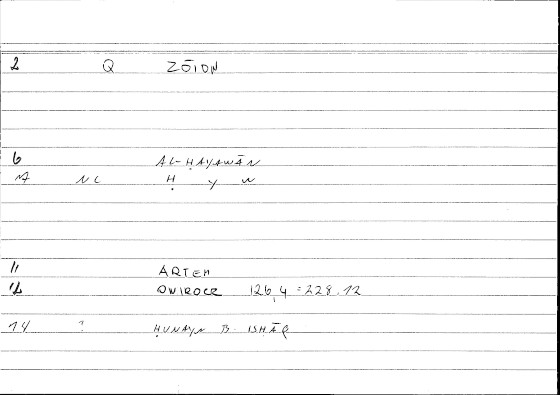 2 Q ZŌION
6 AL-ḤAYAWĀN
NC Ḥ Y W
11 ARTEM
12 ONIROCR 126,4 = 228.12
14 ? ḤUNAYN B. ISḤĀQ